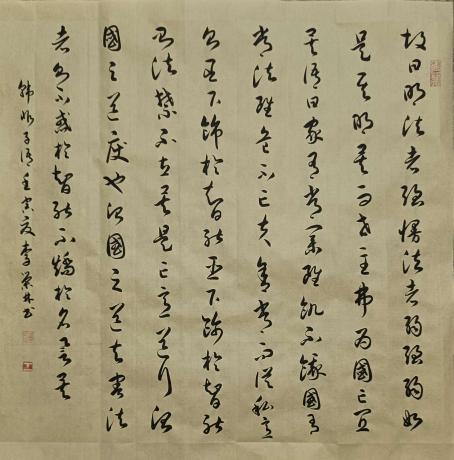 故曰明法者強慢法者弱強弱如
是其明矣而世主弗為國亡宜
矣語曰家有常業雖飢不餓國有
常法雖危不亡夫舍常法而從私意
則臣下飾於智能臣下飾於智能
則法禁不立矣是亡意之道行治
國之道廢也治國之道去害法
者則不惑於智能不矯於名譽矣
韓非子語壬寅夏李榮林書